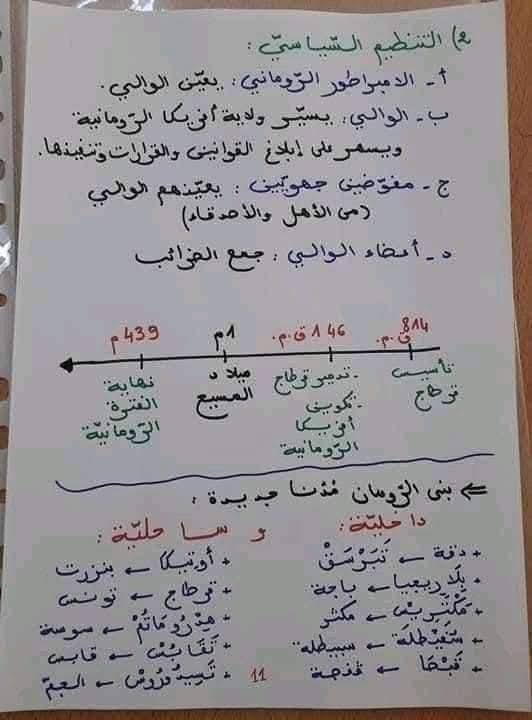 2) التنظيم السّياسيّ :
أ - الامبراطور الرّوماني : يعيّن الوالي .
ب - الوالي : يسيّر ولاية أفريكا الرّومانية
ويسهر على إبلاغ القوانين والقرارات وتنفيذها .
ج - مفوّضين جهويّين : يعيّنهم الوالي
(من الأهل والأصدقاء)
د - أعضاء الوالي : جمع الضرائب
814 ق.م.
146 ق.م.
1م
439 م
تأسيس قرطاج
- تدمير قرطاج
- تكوين أفريكا الرّومانية
ميلاد المسيح
نهاية الفترة الرّومانيّة
⇐ بنى الرّومان مُدُنا جديدة :
داخليّة : و ساحليّة :
+ دقة ← تَبَرْسَقْ
+ بلاريعيا ← باجة
+ مَكْتَرِيسْ ← مكثر
+ سُفَيْطلَة ← سبيطلة
+ قَبْصَا ← قفصة
+ أوتيكا ← بنزرت
+ قرطاج ← تونس
+ هدْرُومَاتُمْ ← سوسة
+ تَكَابَسْ ← قابس
+ تَيسدْرُوسْ ← الجمّ
11